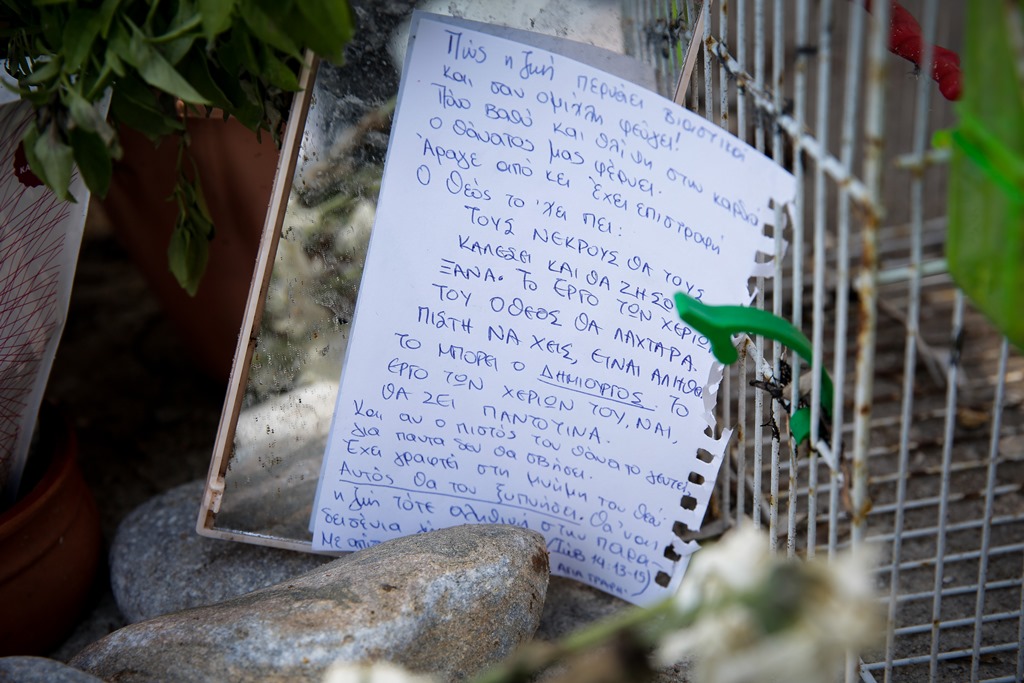 Πώς η ζωή περνάει βιαστικά
και σαν ομίχλη φεύγει!
Πόσο βαθύ και θλίψη στην καρδιά
ο θάνατος μας φέρνει.
Άραγε από κει έχει επιστροφή
Ο Θεός το 'χει πει:
ΤΟΥΣ ΝΕΚΡΟΥΣ ΘΑ ΤΟΥΣ
ΚΑΛΕΣΕΙ ΚΑΙ ΘΑ ΖΗΣΟ
ΞΑΝΑ. ΤΟ ΕΡΓΟ ΤΩΝ ΧΕΡΙΩ
ΤΟΥ Ο ΘΕΟΣ ΘΑ ΛΑΧΤΑΡΑ.
ΠΙΣΤΗ ΝΑ ΧΕΙΣ, ΕΙΝΑΙ ΑΛΗΘΕ
ΤΟ ΜΠΟΡΕΙ Ο ΔΗΜΙΟΥΡΓΟΣ. ΤΟ
ΕΡΓΟ ΤΩΝ ΧΕΡΙΩΝ ΤΟΥ, ΝΑΙ,
ΘΑ ΖΕΙ ΠΑΝΤΟΤΙΝΑ.
Και αν ο πιστός του θάνατο γευτεί,
για πάντα δεν θα σβήσει.
Έχει γραφτεί στη μνήμη του Θεού
Αυτός θα τον ξυπνήσει. Θα 'ναι
η ζωή τότε αληθινή στην παρα-
δεισένια
Με (Ιώβ 14:13-15)
ΑΓΙΑ ΓΡΑΦΗ